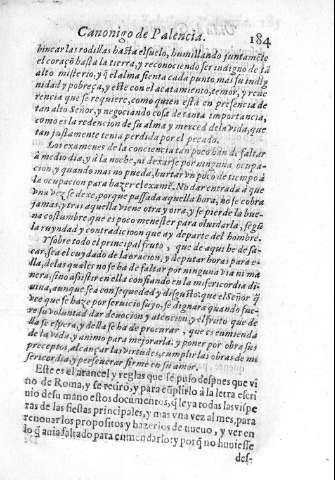 Canonigo de Palencia. 184
hincar las rodillas hasta el suelo, humillando juntamēte
el coraçō hasta la tierra, y reconociendo ser indigno de tā
alto misterio, y q̄ el alma sienta cada punto mas su indig
nidad y pobreça, y este con el acatamiento, temor, y reue-
rencia que se requiere, como quien està en presencia de
tan alto Señor, y negociando cosa de tanta importancia,
como es la redencion de su alma y merced de la vida, que
tan justamente tenia perdida por el pecado.
Los examenes de la conciencia tan poco han de faltar
à medio dia, y à la noche, ni dexarse por ninguna ocupa-
cion, y quando mas no pueda, hurtar vn poco de tiempo à
la ocupacion para hazer el examē. No dar entrada à que
vna vez se dexe, porque passada aquella hora, no se cobra
jamas, y tras aquella viene otra y otra, y se pierde la bue-
na costumbre, que es poco menester para oluidarla, segū
la ruyndad y contradicion que ay departe del hombre.
Y sobre todo el principal fruto, que de aqui he de sa-
car, sea el cuydado de la oracion, y deputar horas para e-
lla, de las quales no se ha de faltar por ninguna via ni ma
nera, sino assistir en ella confiando en la misericordia di
uina, aunque sea con sequedad y disgusto: que el Señor q̄
vee que se haze por seruicio suyo, se dignarà quando fue-
re su voluntad dar deuocion y atencion, y el fruto que de
lla se espera, y della se ha de procurar, que es emienda
de la vida, y animo para mejorarla, y poner por obra sus
preceptos, alcançar las virtudes, cumplir las obras de mi
sericordia, y perseuerar firme en su amor.
Este es el arancel y reglas que se puso despues que vi
no de Roma, y se retirò, y para cūplirlo à la letra escri
uio de su mano estos documentos, q̄ leya todas las vispe
ras de las fiestas principales, y mas vna vez al mes, para
renouar los propositos y hazerlos de nueuo, y ver en
lo q̄ auia faltado para enmendarlo: y porq̄ no huuiesse
des-